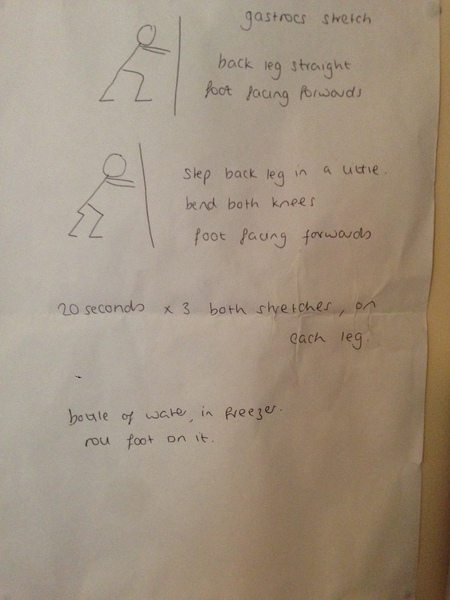 gastrocs stretch
back leg straight
foot facing forwards
step back leg in a little.
bend both knees
foot facing forwards
20 seconds x 3 both stretches, on
each leg.
bottle of water, in freezer.
roll foot on it.